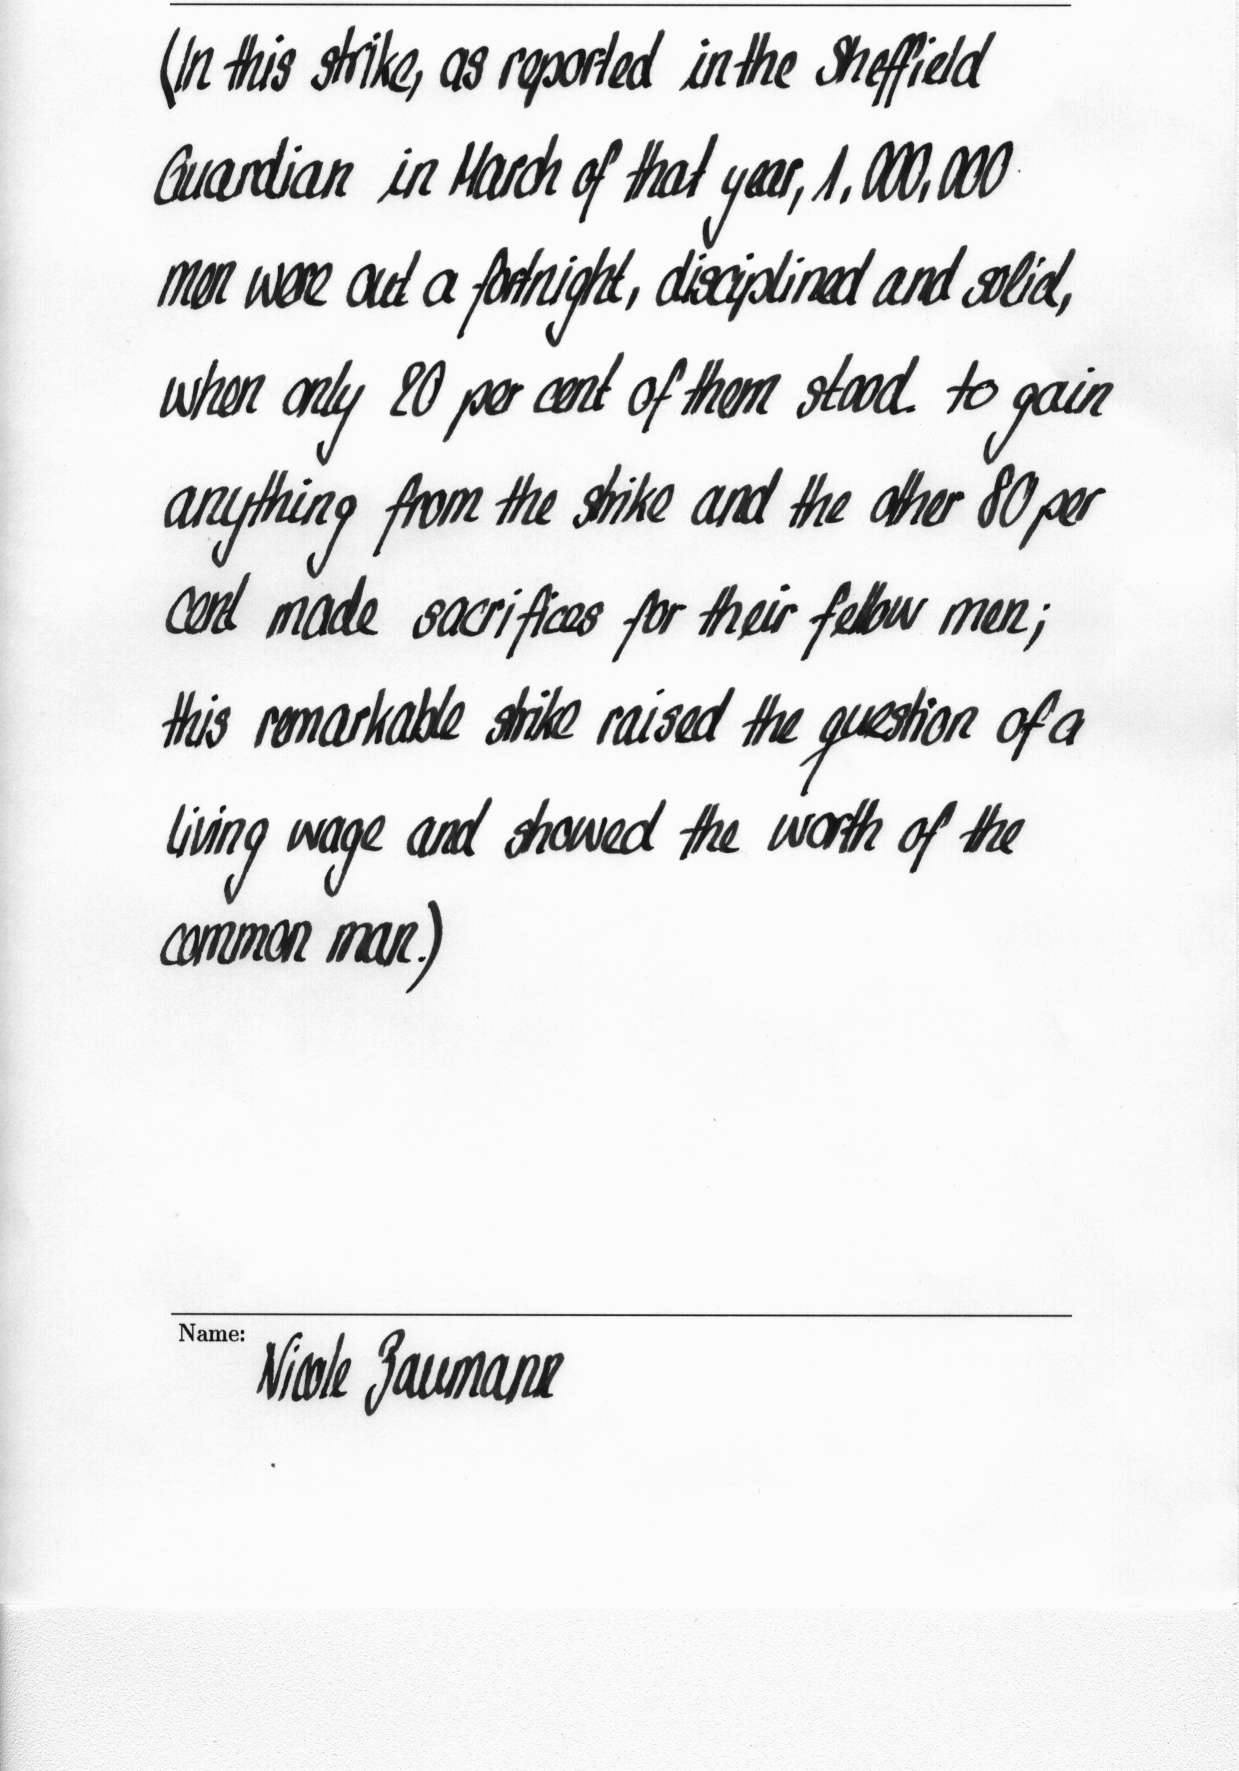 (In this strike, as reported in the Sheffield
Guardian in March of that year, 1,000,000
men were out a fortnight, disciplined and solid,
when only 20 per cent of them stood. to gain
anything from the strike and the other 80 per
cent made sacrifices for their fellow men;
this remarkable strike raised the question of a
living wage and showed the worth of the
common man.)
Name:
Nicole Baumann